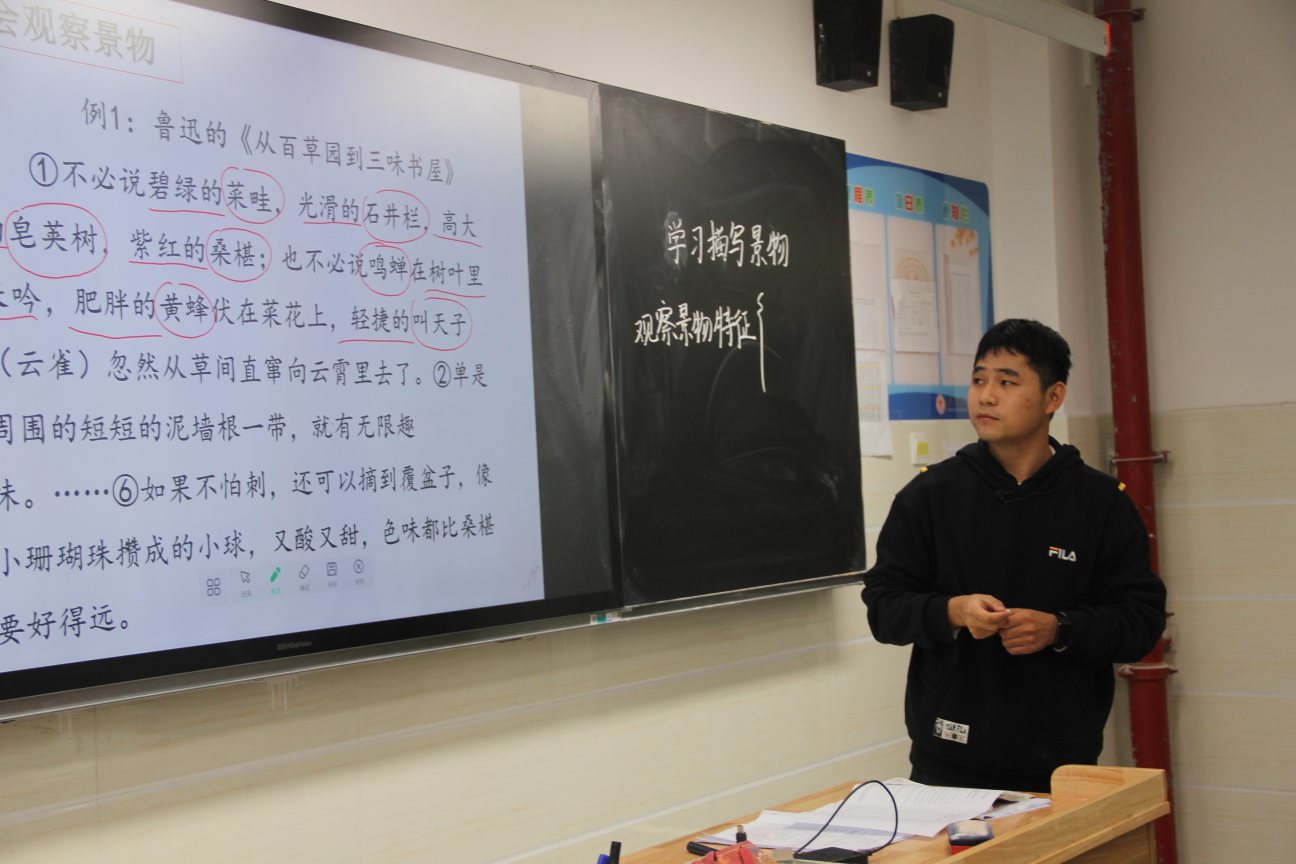 会观察景物
例1：鲁迅的《从百草园到三味书屋》
①不必说碧绿的菜畦，光滑的石井栏，高大
皂荚树，紫红的桑椹；也不必说鸣蝉在树叶里
吟，肥胖的黄蜂伏在菜花上，轻捷的叫天子
（云雀）忽然从草间直窜向云霄里去了。②单是
周围的短短的泥墙根一带，就有无限趣
味。……⑥如果不怕刺，还可以摘到覆盆子，像
小珊瑚珠攒成的小球，又酸又甜，色味都比桑椹
要好得远。
学习描写景物
观察景物特征{
FILA